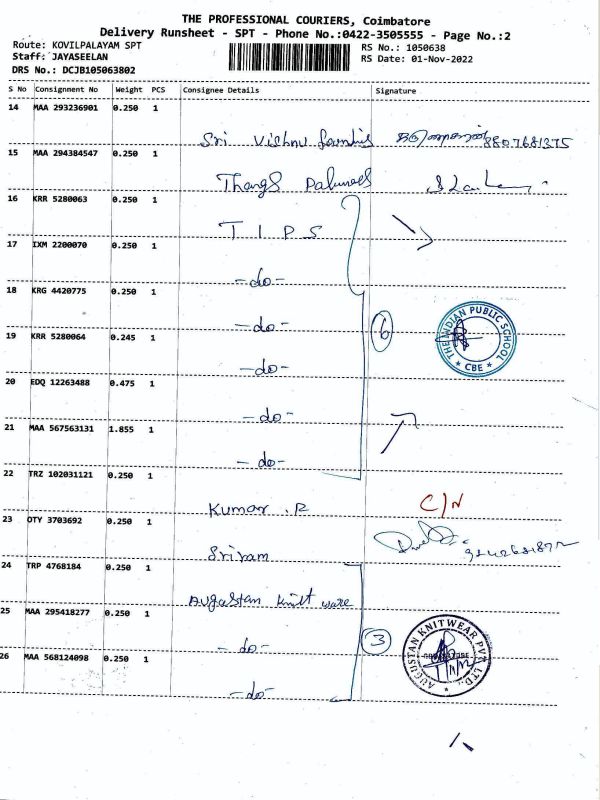 THE PROFESSIONAL COURIERS, Coimbatore
Delivery Runsheet - SPT - Phone No.:0422-3505555 - Page No.:2
Route: KOVILPALAYAM SPT
Staff: JAYASEELAN
DRS No.: DCJB105063802
RS No.: 1050638
RS Date: 01-Nov-2022
S No Consignment No Weight PCS Consignee Details Signature
14 MAA 293236901 0.250 1
Sri Vishnu 8807681375
15 MAA 294384547 0.250 1
Thangs
16 KRR 5280063 0.250 1
T I P S
17 IXM 2200070 0.250 1
-do-
18 KRG 4420775 0.250 1
-do- 6
THE INDIAN PUBLIC SCHOOL
* CBE *
19 KRR 5280064 0.245 1
-do-
20 EDQ 12263488 0.475 1
-do-
21 MAA 567563131 1.855 1
-do-
22 TRZ 102031121 0.250 1
Kumar .R C/N
23 OTY 3703692 0.250 1
Sriram
24 TRP 4768184 0.250 1
Augastan knitt ware
25 MAA 295418277 0.250 1
-do- 3
AUGUSTAN KNITWEAR PVT LTD.,
26 MAA 568124098 0.250 1
-do-